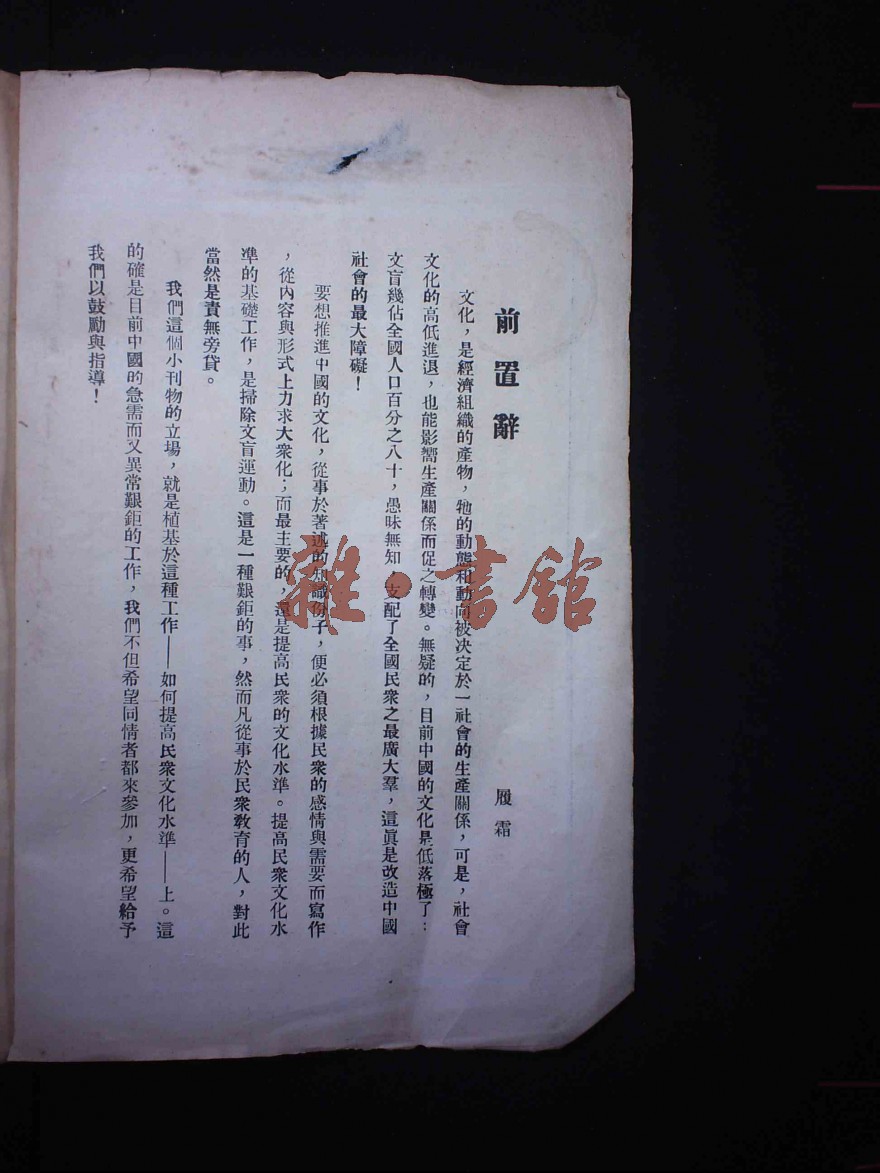 前置辭
履霜
文化，是經濟組織的產物，牠的動態和動向被决定於一社會的生產關係，可是，社會
文化的高低進退，也能影響生產關係而促之轉變。無疑的，目前中國的文化是低落極了：
文盲幾佔全國人口百分之八十，愚昧無知，支配了全國民衆之最廣大羣，這眞是改造中國
社會的最大障礙！
要想推進中國的文化，從事於著述的知識份子，便必須根據民衆的感情與需要而寫作
，從內容與形式上力求大衆化；而最主要的，還是提高民衆的文化水準。提高民衆文化水
準的基礎工作，是掃除文盲運動。這是一種艱鉅的事，然而凡從事於民衆敎育的人，對此
當然是責無旁貸。
我們這個小刊物的立場，就是植基於這種工作——如何提高民衆文化水準——上。這
的確是目前中國的急需而又異常艱鉅的工作，我們不但希望同情者都來參加，更希望給予
我們以鼓勵與指導！
雜·書館